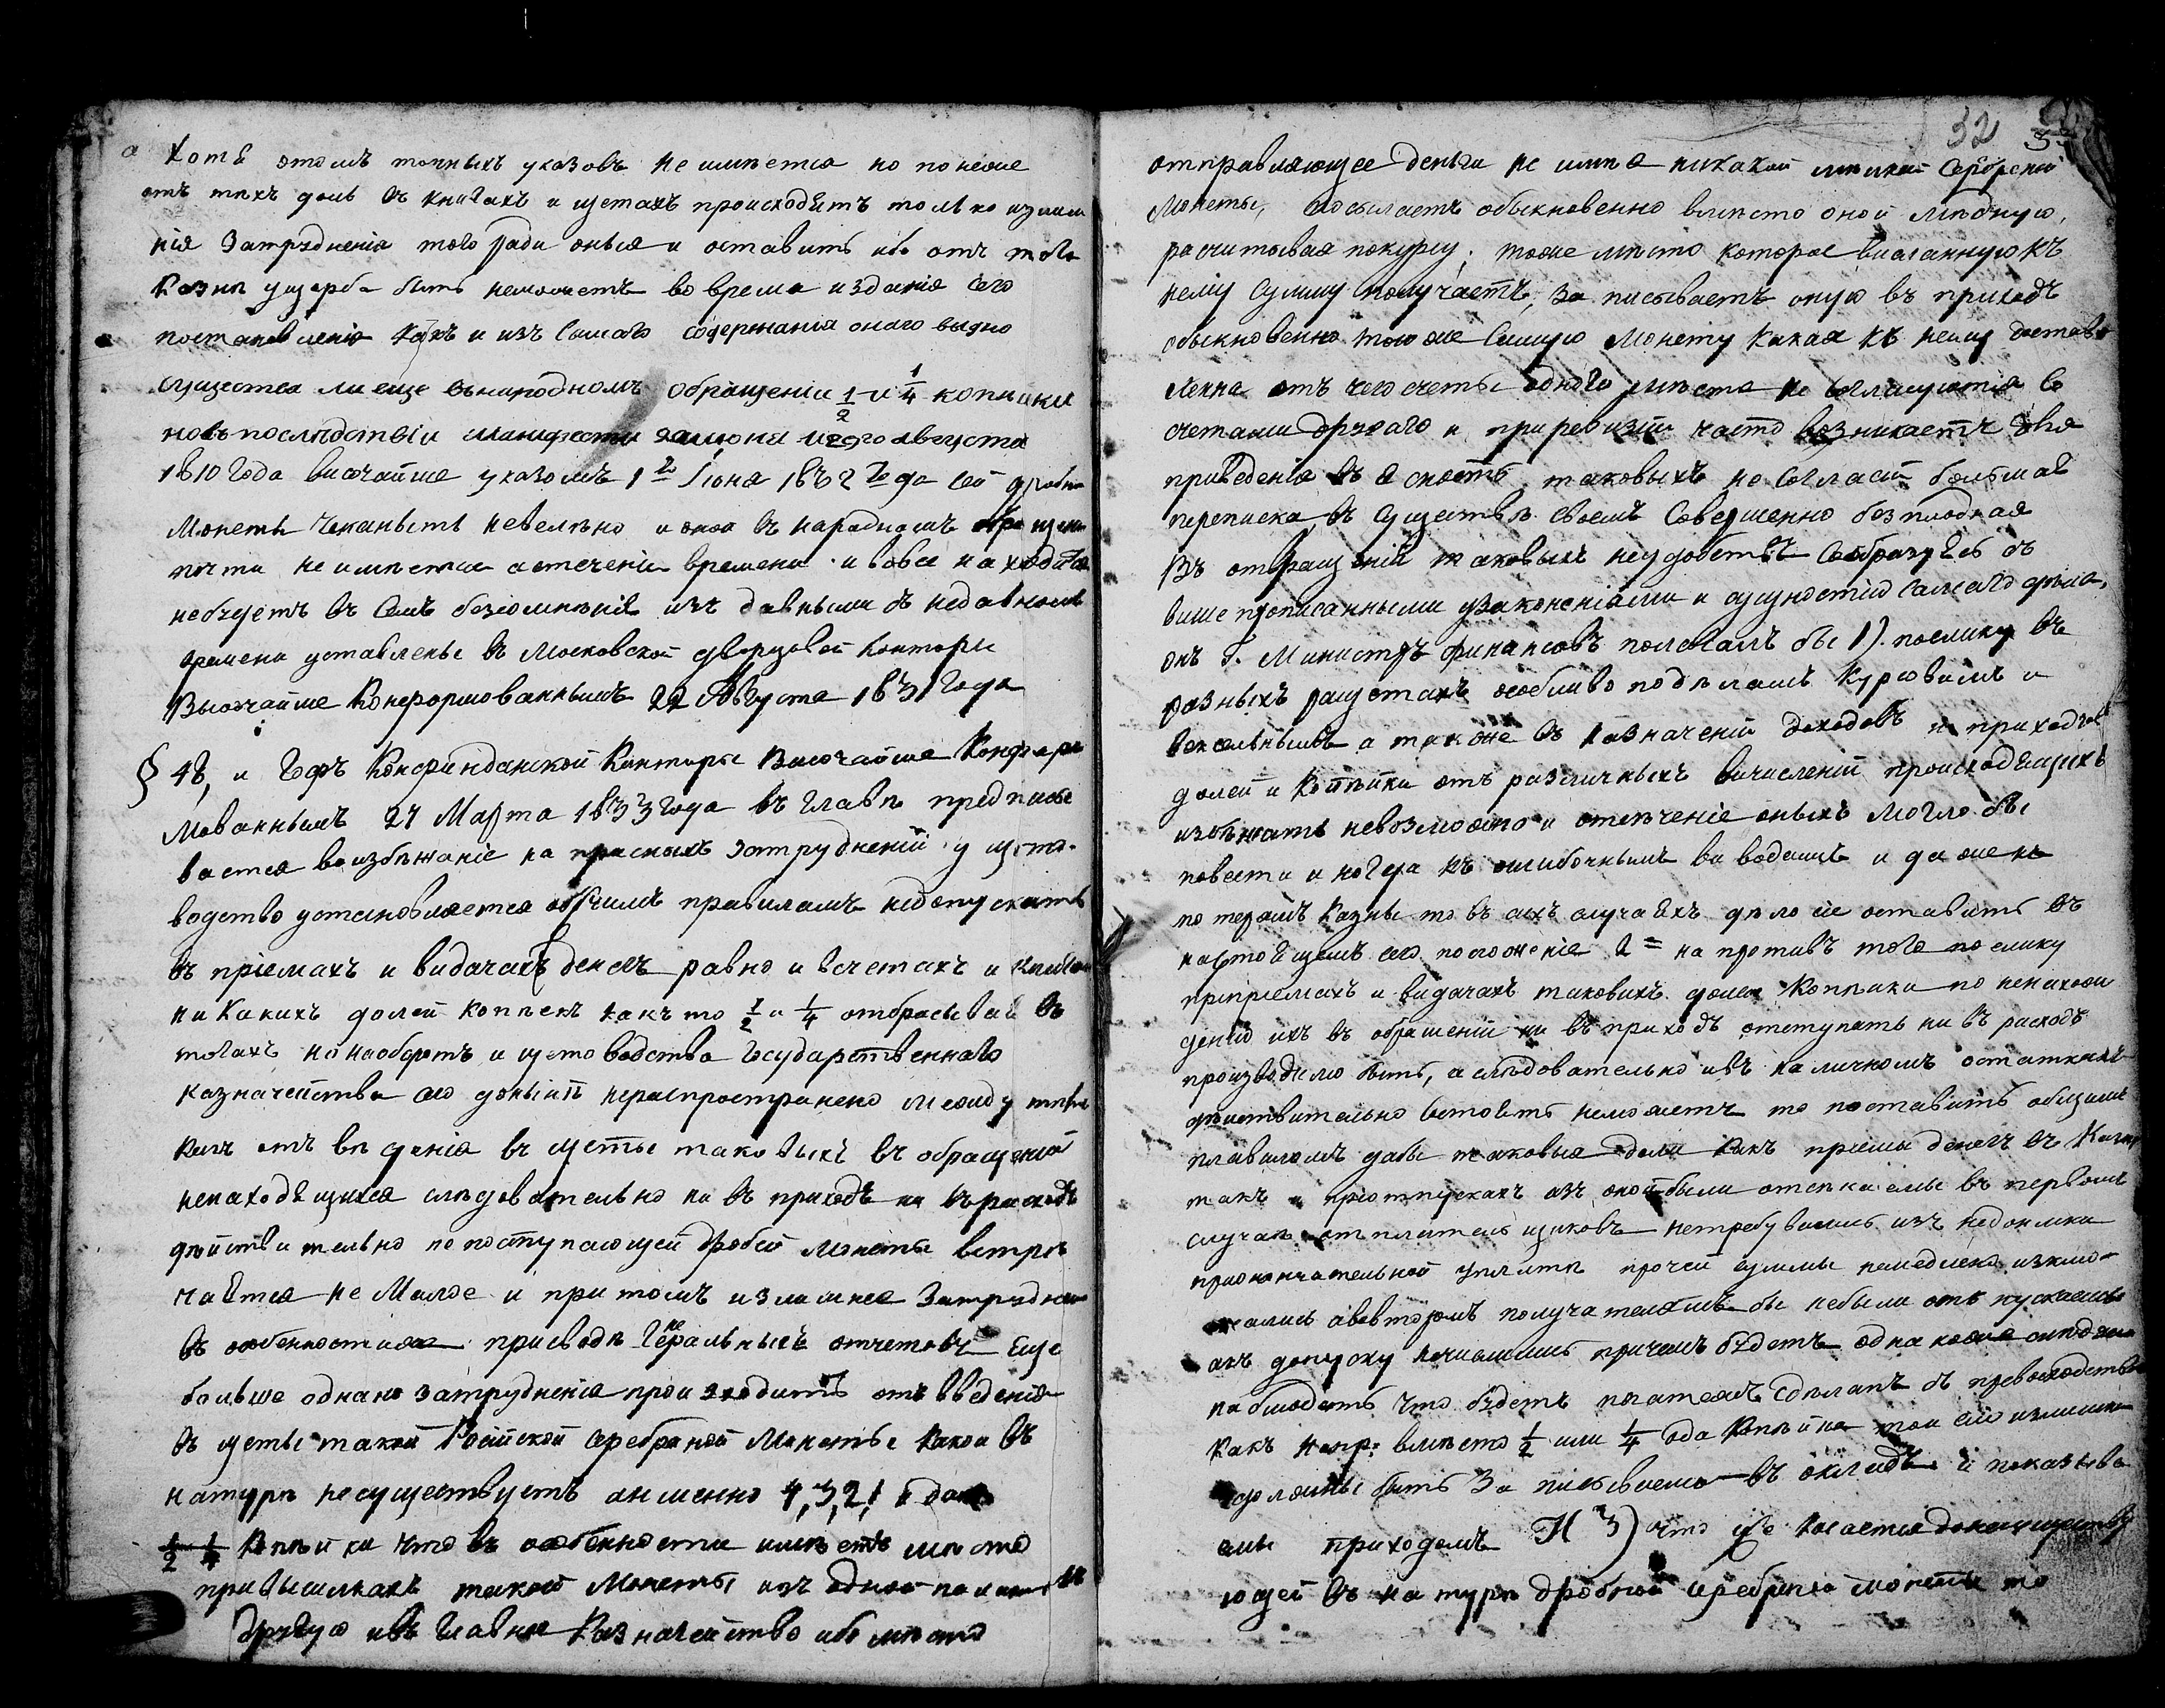 хотя отомъ точныхъ указовъ не имѣется но понеже
отъ тѣхъ доль въ книгахъ и щетахъ происходятъ только излиш
нія затрудненія того ради оныя и оставить ибо отъ того
Казнѣ ущерба быть неможетъ во время изданія сего
постановленія какъ и изъ самаго содержанія онаго видно
существ ли еще въ народномъ обращеніи 1/2 и 1/4 копѣики
новъ послѣдствіи манифеста 29го августа
1810 года височайше указомъ 1го Iюня 1832 года сей дробн
Монеты чеканыть невелѣно и она въ народномъ обращени
почти не имѣетса а стеченіи времени и вовсе находится
небудетъ въ семъ безсомнѣнія изъ давныхъ въ недавномъ
времени уставленые въ Московской дворцовой Конторы
Высочайше Конформованнымъ 22 Августа 1831 года
§ 48, и Гофъ Конторы Височайше Конфир
мованнымъ 27 Марта 1833 года въ главѣ предписы
вается воизбѣжаніе напрасныхъ затрудненій у щето
водство установляется общимъ правиламъ недопускать
въ пріемахъ и видачахъ денегъ равно и всчетахъ и книга
ни Какихъ долей копѣекъ какъ то 1/2 и 1/4 отбрасывая въ
тогахъ но наоборотъ и щетоводства Государственнаго
казначейства сіо донынѣ нераспространено между тѣмъ
какъ отъ вѣденія въ щеты таковыхъ въ обращеній
ненаходящихся слѣдовательно ни въ приходъ ни въ расходъ
дѣйствительно непоступающей дробей монеты встрѣ
чается не Малое и притомъ излишнее затруднен
въ особенностяхъ приводѣ Генеральныхъ отчетовъ Еще
больше однако затрудненія произходитъ отъ введенія
въ щеты такой Россійской серебряной Монеты какой въ
натурѣ несуществуетъ аименно 4, 3, 2, 1 и даже
1/2 1/4 Копѣйки что въ особенности имѣетъ мѣсто
привысилкахъ такой Монеты изъ одной палаты въ
другую ивъ Главное Казначейство ибо мѣсто
32
отправляющее деньги не имѣя никакой мѣлкой серебреной
Монеты, посылаетъ обыкновенно вмѣсто оной мѣдную,
расчитывая покурсу; тоже мѣсто которое висланную къ
нему сумму получаетъ, записываетъ оную въ приходъ
обыкновенно тоюже самую монету какая къ нему достав
лена отъ чего счеты одного мѣста не согласуются со
счетами другаго и приревизіи часто возникаетъ для
приведенія въ ясность таковыхъ не согласій большая
переписка въ существѣ своемъ совершенно безплодная
Въ отвращеній таковыхъ неудобствъ сообразуясь съ
више прописанными узаконеніями и сущностію самаго дѣла,
онъ Г. Министръ финансовъ полагалъ бы 1) поелику въ
разныхъ ращетахъ особливо подѣламъ Курсовымъ и
вексельнымъ а также въ назначеній доходовъ и приходовъ
долей Копѣйки отъ различныхъ вичисленій происходящихъ
избѣжать невозможно и отсѣченіе оныхъ могло бы
повести иногда къ ошибочнымъ виводамъ и даже къ
потерямъ казны то въ сихъ случаяхъ дѣло сіе оставить въ
настоящемъ его положеніе 2= напротивъ того поелику
припріемахъ и видачахъ таковихъ долей Копѣики по ненахож
денію ихъ въ обращеній ни въ приходъ отступать ни въ расходъ
производимо быть, а слѣдовательно ивъ наличномъ остаткахъ
дѣйствительно состоять неможетъ то поставить общимъ
правиломъ дабы таковыя доли какъ приемы денегъ въ Казну
такъ и приотпускахъ изъ оной были отсѣкаемы въ первомъ
случаѣ отъ плательщиковъ нетребувались изъ недоимки
приокончательной уплатѣ прочей суммы немедлено изклю
чались авовторомъ получателямъ бы небыли отпускаемы
икъ допуску причемъ будетъ однакоже слѣдуетъ
наблюдать что будетъ платежъ сдѣланъ съ превосходств
Какъ напр: вмѣсто 1/2 или 1/4 ода Копѣйка то и сіо излишки
должны быть записываемо въ окладъ и показыва
емы приходомъ И 3) что же касается до несуществу
ющей въ натурѣ дробной серебреной монеты то